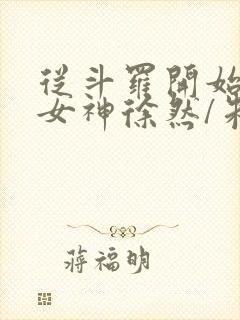 從斗羅開始
女神徐然/
蔣福明